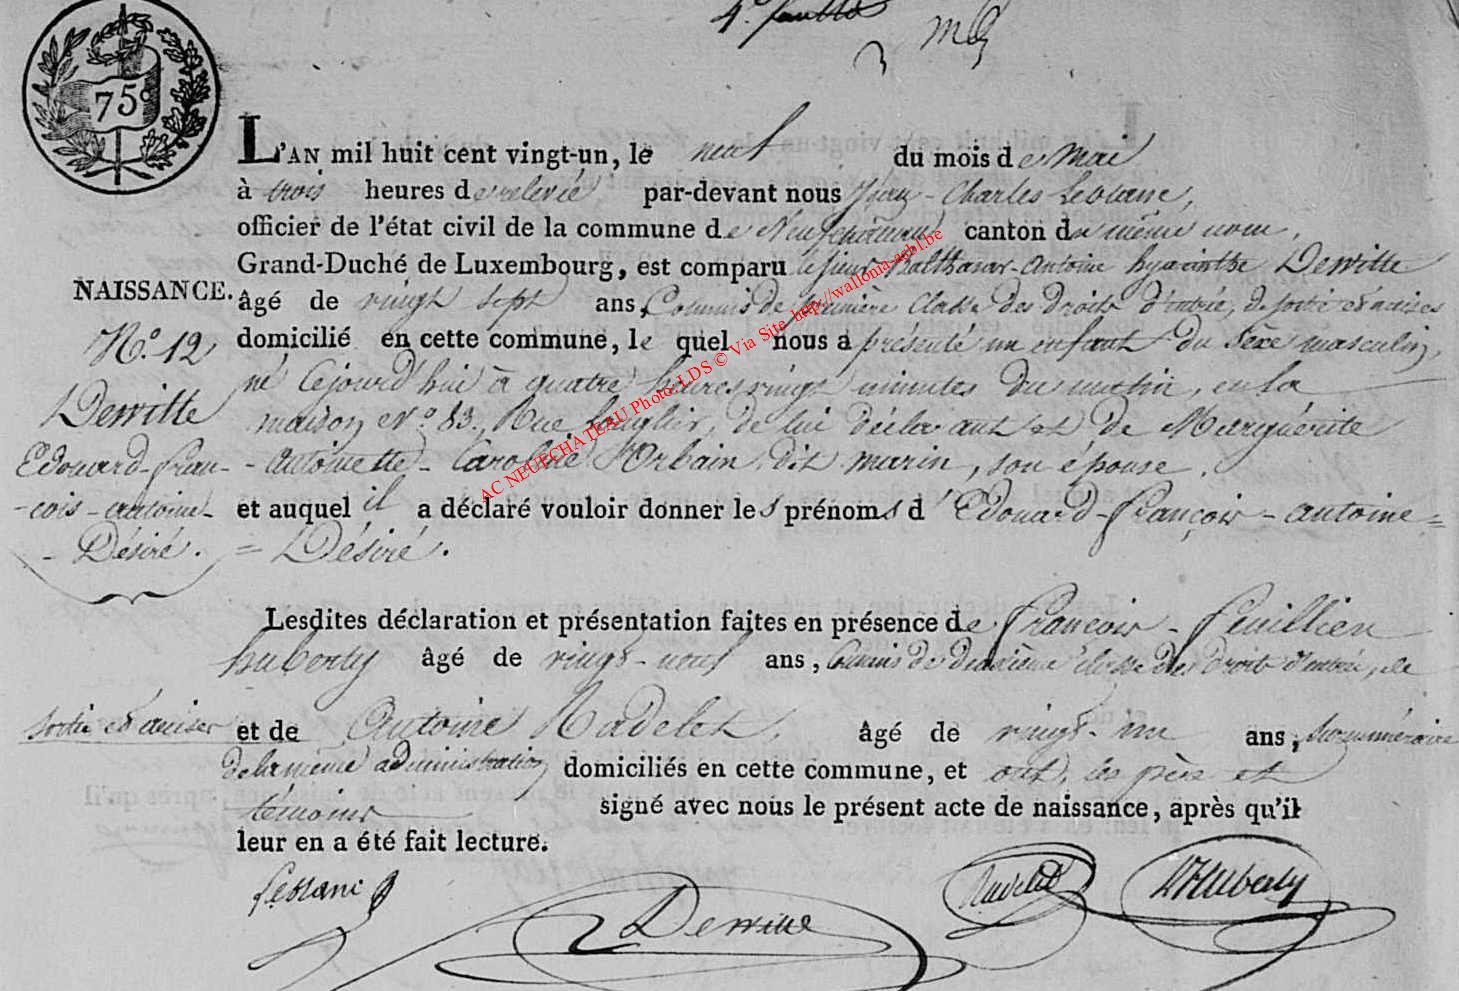 4e feuille
75c
L'AN mil huit cent vingt-un, le neuf du mois de Mai
à trois heures de relevée, par-devant nous Jean-Charles
officier de l'état civil de la commune de Neufchâteau canton du même nom,
Grand-Duché de Luxembourg, est comparu le sieur Balthazar-Antoine hyacinthe Dewitte
NAISSANCE.
âgé de vingt sept ans, Commis de première Classe des droits d'entrée, de sortie et accises
domicilié en cette commune, le quel nous a présenté un enfant du Sexe masculin,
né Cejourd'hui à quatre heures vingt minutes du matin, en la
maison No 83, Rue, de lui déclarant et de Marguérite
-Antoinette-Caroline D'Orbain dit marin, son épouse.
et auquel il a déclaré vouloir donner les prénoms d'Edouard-François-Antoine=
=Désiré.
No. 12
Dewitte
Edouard-Fran-
-cois-antoine-
-Désiré.
Lesdites déclaration et présentation faites en présence de François-Feuillien
huberty âgé de vingt-neuf ans, Commis de deuxième classe des droits d'entrée, de
sortie et accises et de Antoine Nadelet, âgé de vingt-un ans, surnuméraire
de la même administration domiciliés en cette commune, et ont, les père et
témoins signé avec nous le présent acte de naissance, après qu'il
leur en a été fait lecture.
Dewitte
Nadelet
Huberty
AC NEUECHATEAU Photo LDS © Via Site http://wallonia-asbl.be